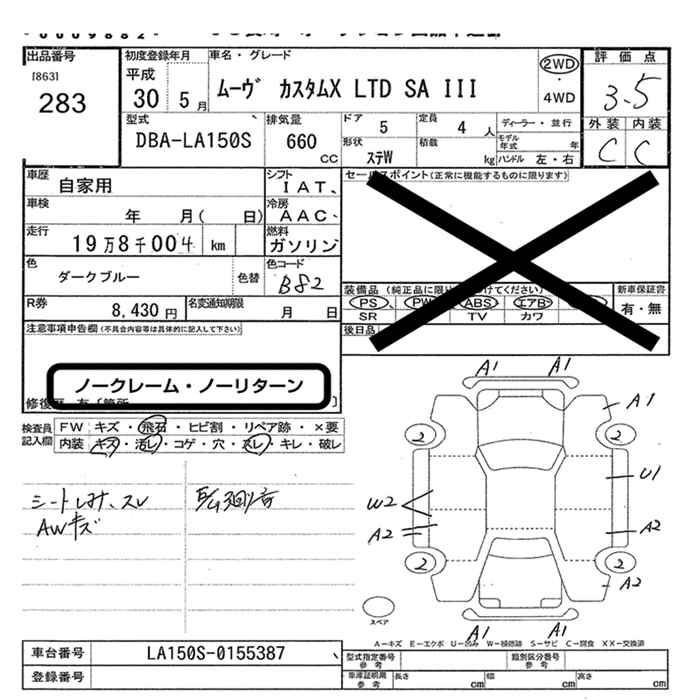 出品番号 初度登録年月 車名・グレード 2WD 評価点
[863] 平成
283 30 5月 ムーヴ カスタムX LTD SA III 4WD 3.5
型式 排気量 ドア 定員 ディーラー・並行 外装 内装
DBA-LA150S 660 CC 5 4人 モデル年式 年 C C
形状 ステW 積載 kg ハンドル 左・右
車歴 自家用 シフト IAT、 セールスポイント(正常に機能するものに限ります)
車検 年 月( 日) 冷房 AAC、
走行 19万8千004 km 燃料 ガソリン
色 ダークブルー 色替 色コード B82
装備品 (純正品に限り 付けてください) 新車保証書
R券 8,430円 名変通知期限 月 日 PS PW ABS エアB 有・無
SR TV カワ
注意事項申告欄(不具合内容等は具体的に記入して下さい) 後日品
ノークレーム・ノーリターン
検査員 FW キズ・飛石・ヒビ割・リペア跡・×要
記入欄 内装 キズ・汚レ・コゲ・穴・スレ・キレ・破レ
シートしみ、スレ
AWキズ
A1 A1
A1
2 2
U1
W2
A2 A2
2 2
A2
スペア A1 A1
A-キズ E-エクボ U-凹み W-補修跡 S-サビ C-腐食 XX-交換済
車台番号 LA150S-0155387 型式指定番号 参考 類別区分番号 参考
登録番号 車庫証明用 参考 長さ cm 幅 cm 高さ cm